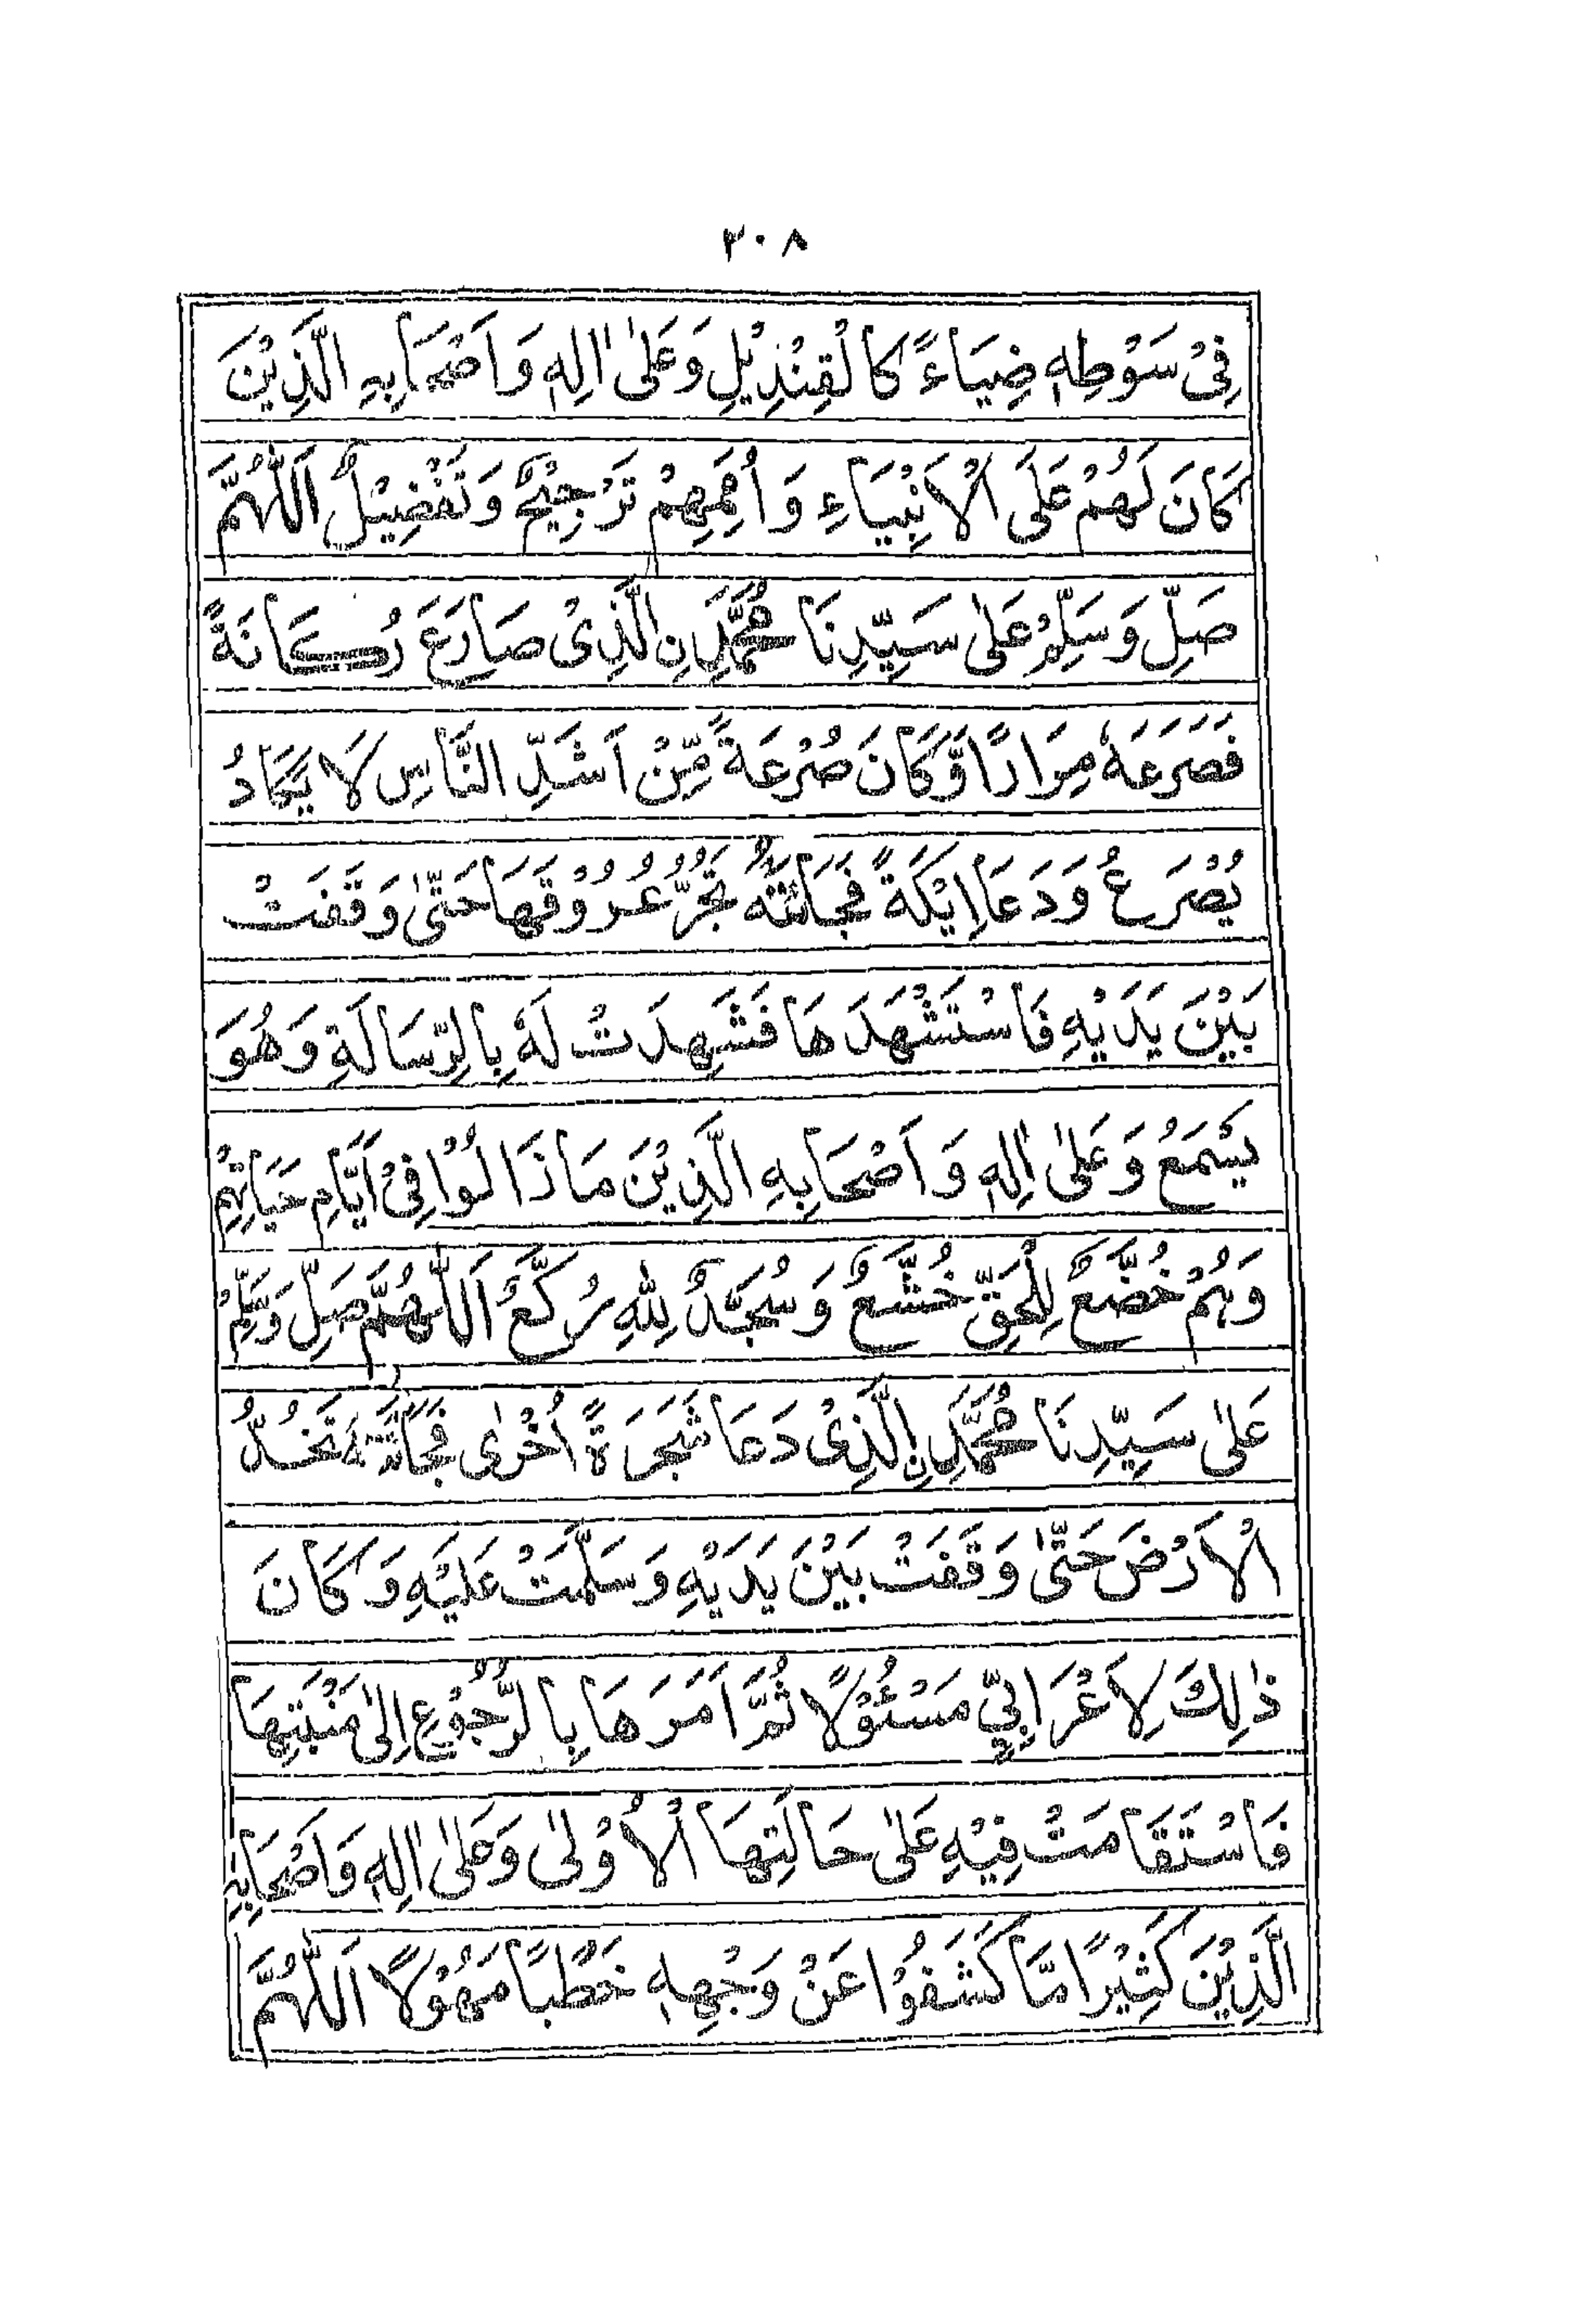 ٣٠٨
فِىْ سَوْطِهٖ ضِيَاءً كَالْقِنْدِيْلِ وَعَلىٰ اٰلِهٖ وَاَصْحَابِهِ الَّذِيْنَ
كَانَ لَهُمْ عَلَى الْاَنْبِيَاءِ وَاُمَمِهِمْ تَرْجِيْحٌ وَتَفْضِيْلٌ اَللّٰهُمَّ
صَلِّ وَسَلِّمْ عَلىٰ سَيِّدِنَا مُحَمَّدِنِ الَّذِىْ صَارَعَ رُكَانَةً
فَصَرَعَهٗ مِرَارًا وَّكَانَ صُرْعَةً مِّنْ اَشَدِّ النَّاسِ لَا يَكَادُ
يُصْرَعُ وَدَعَا اِيْكَةً فَجَائَتْهُ تَجُرُّ عُرُوْقَهَا حَتّىٰ وَقَفَتْ
بَيْنَ يَدَيْهِ فَاسْتَشْهَدَهَا فَشَهِدَتْ لَهٗ بِالرِّسَالَةِ وَهُوَ
يَسْمَعُ وَعَلىٰ اٰلِهٖ وَاَصْحَابِهِ الَّذِيْنَ مَا زَالُوْا فِىْ اَيَّامِ حَيَاتِهِمْ
وَهُمْ خُضَّعٌ لِلْحَقِّ خُشَّعٌ وَسُجَّدٌ لِلّٰهِ رُكَّعٌ اَللّٰهُمَّ صَلِّ وَسَلِّمْ
عَلىٰ سَيِّدِنَا مُحَمَّدِنِ الَّذِىْ دَعَا شَجَرَةً اُخْرٰى فَجَائَتْهُ تَخُدُّ
الْاَرْضَ حَتّىٰ وَقَفَتْ بَيْنَ يَدَيْهِ وَسَلَّمَتْ عَلَيْهِ وَكَانَ
ذٰلِكَ لِاَعْرَابِيٍّ مَسْئُوْلًا ثُمَّ اَمَرَهَا بِالرُّجُوْعِ اِلىٰ مَنْبَتِهَا
فَاسْتَقَامَتْ فِيْهِ عَلىٰ حَالَتِهَا الْاُوْلىٰ وَعَلىٰ اٰلِهٖ وَاَصْحَابِهِ
الَّذِيْنَ كَثِيْرًا مَّا كَشَفُوْا عَنْ وَجْهِهٖ خَطْبًا مَهُوْلًا اَللّٰهُمَّ